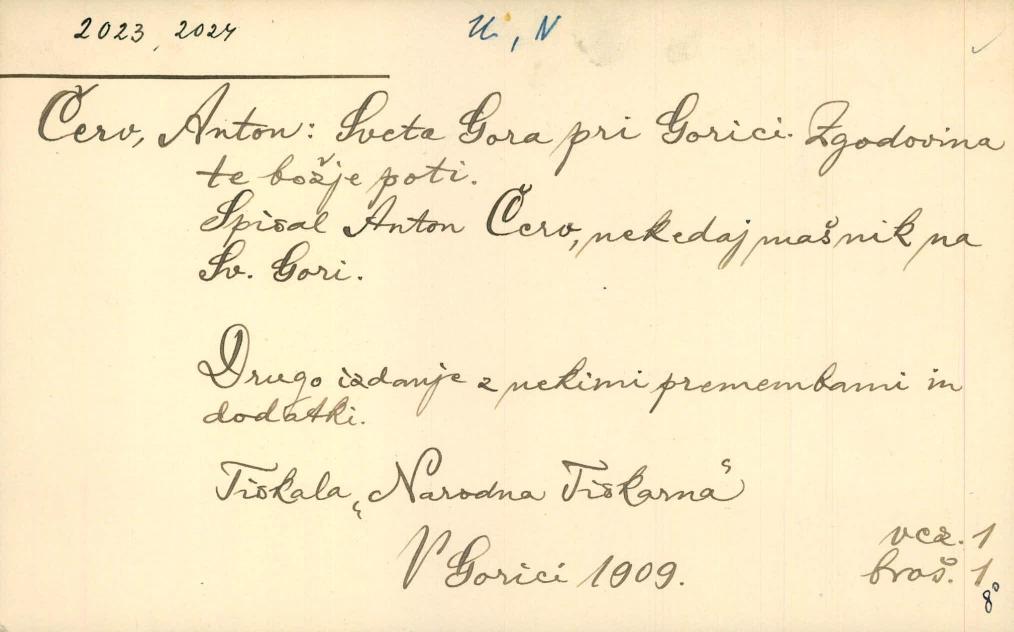 2023, 2024
U, N
Červ, Anton: Sveta Gora pri Gorici. Zgodovina
te božje poti.
Spisal Anton Červ, nekedaj mašnik na
Sv. Gori.
Drugo izdanje z nekimi premembami in
dodatki.
Tiskala „Narodna Tiskarna“
V Gorici 1909.
vez. 1
broš. 1
8°